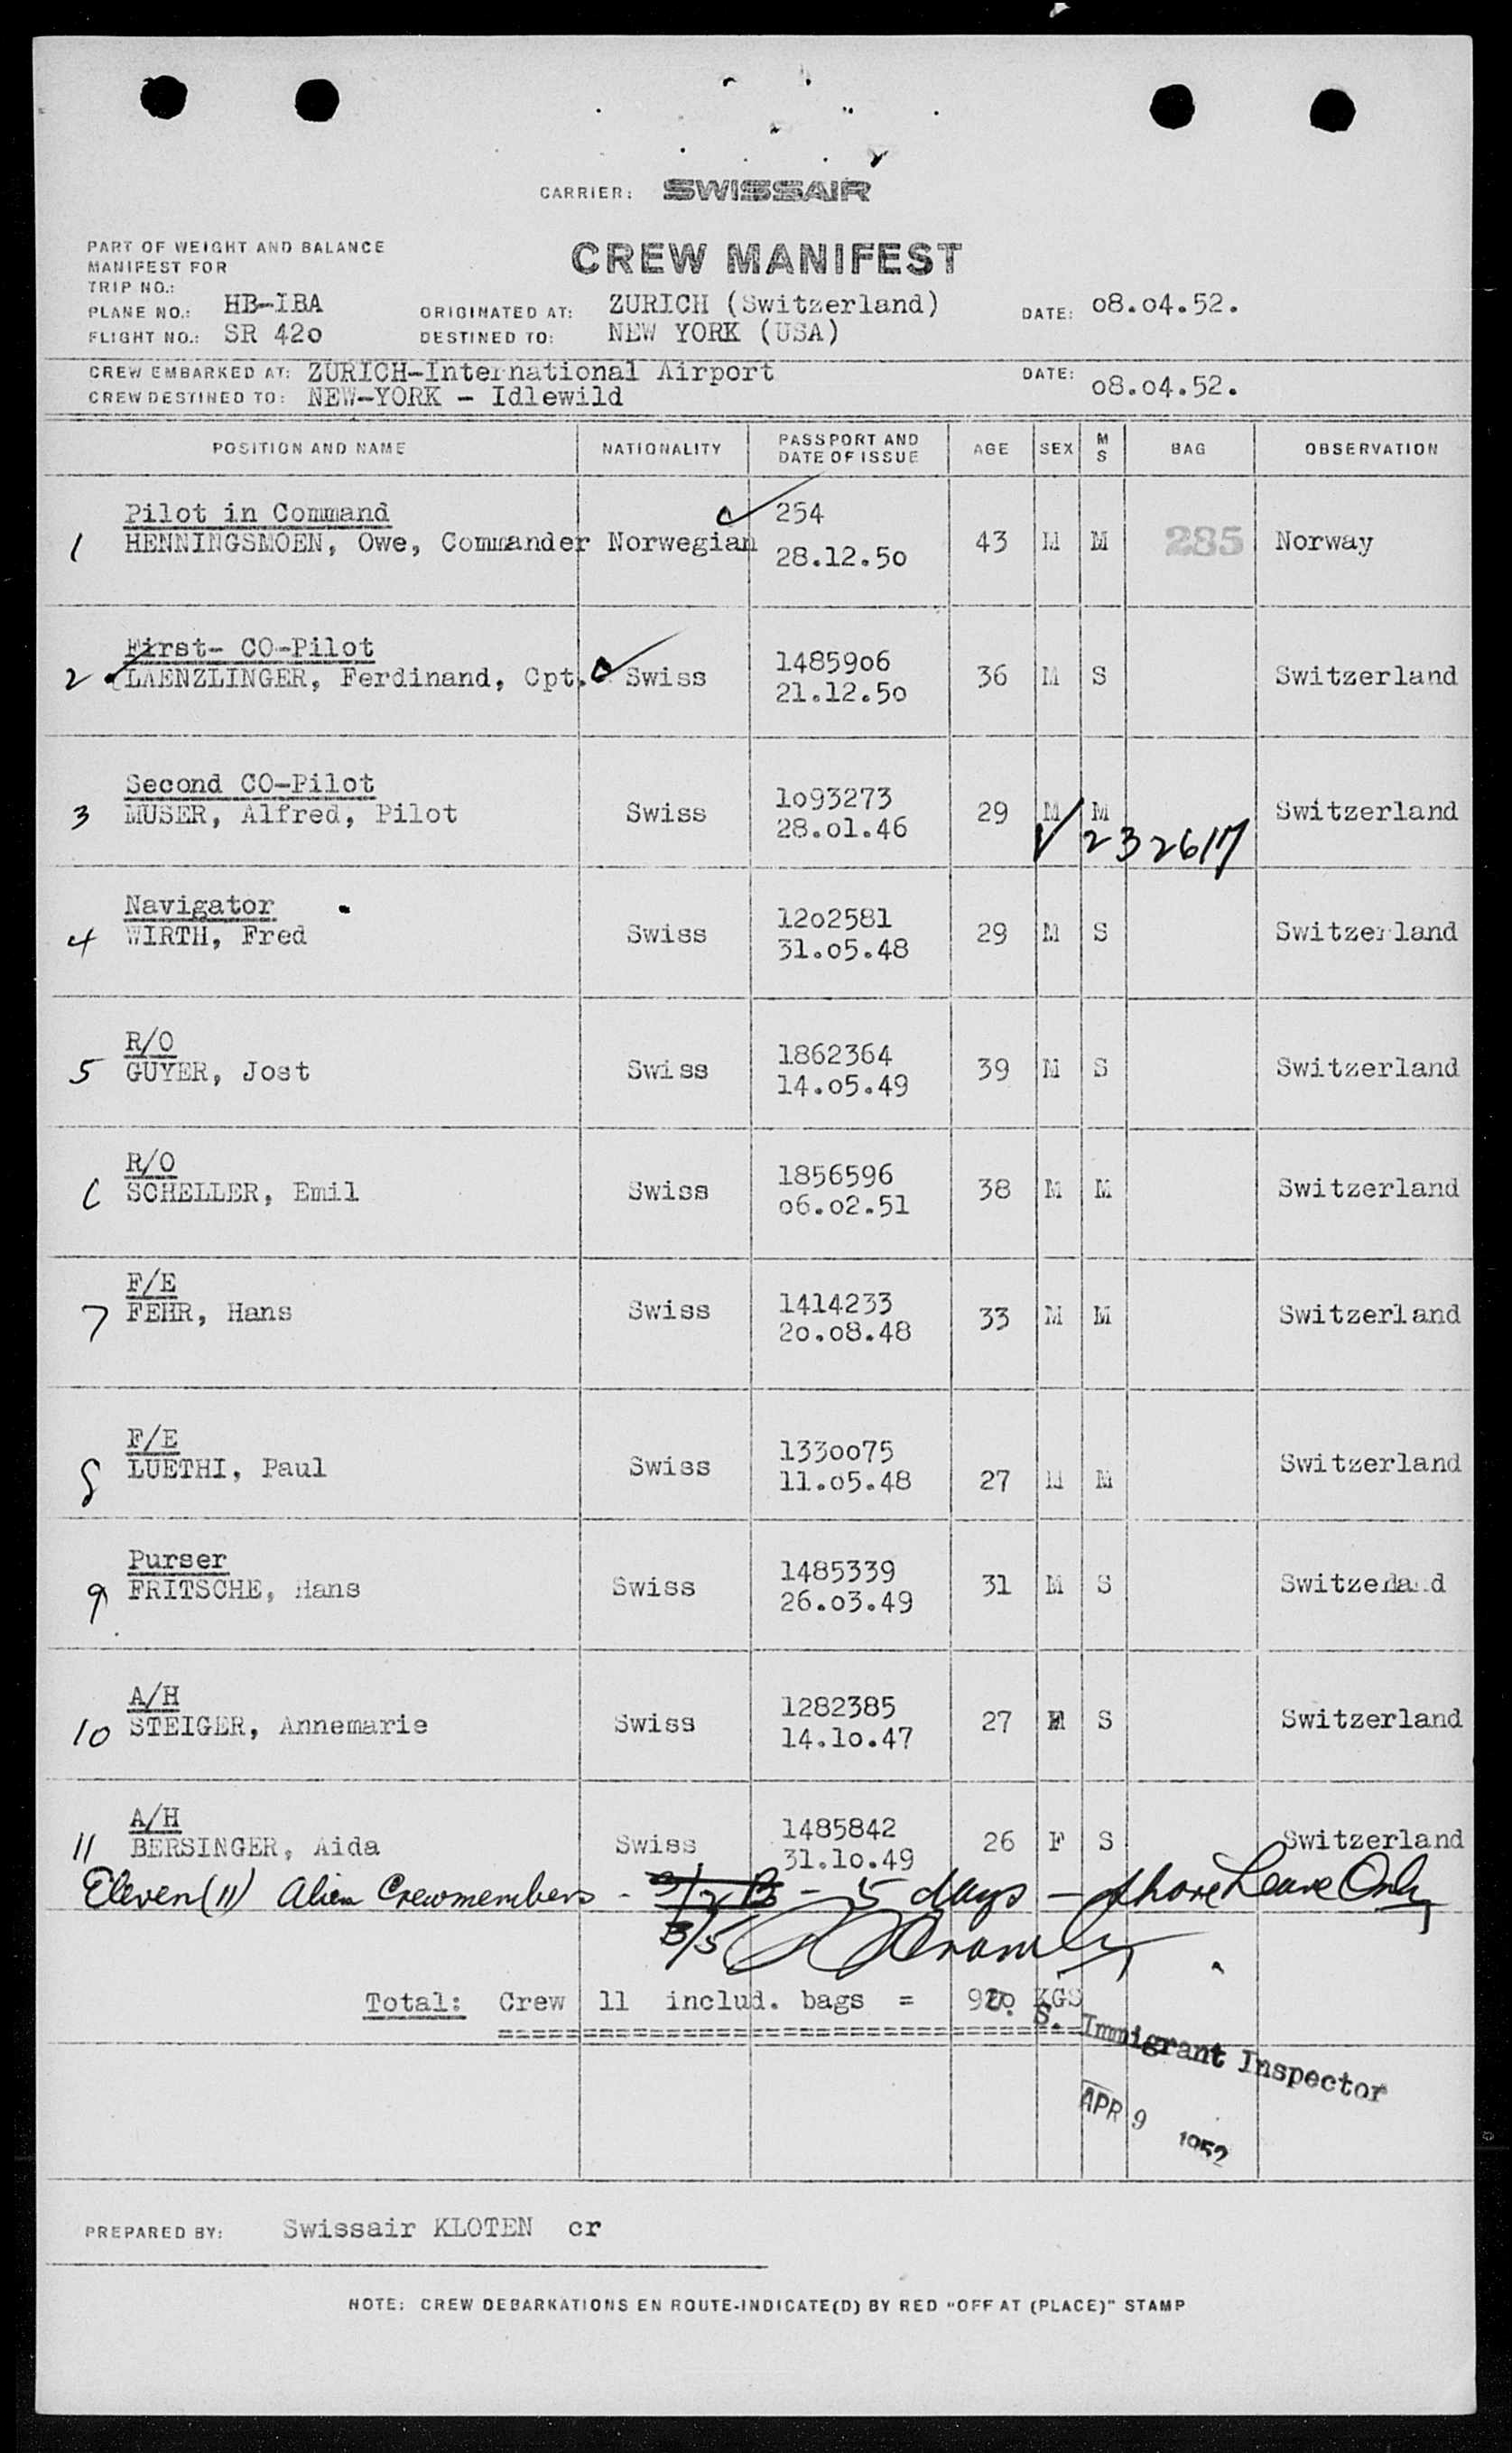 CARRIER: SWISSAIR
PART OF WEIGHT AND BALANCE
MANIFEST FOR
CREW MANIFEST
TRIP NO.:
PLANE NO.: HB-IBA ORIGINATED AT: ZURICH (Switzerland) DATE: o8.o4.52.
FLIGHT NO.: SR 42o DESTINED TO: NEW YORK (USA)
CREW EMBARKED AT: ZURICH-International Airport DATE: o8.o4.52.
CREW DESTINED TO: NEW-YORK - Idlewild
POSITION AND NAME NATIONALITY PASSPORT AND DATE OF ISSUE AGE SEX M S BAG OBSERVATION
Pilot in Command 254
1 HENNINGSMOEN, Owe, Commander Norwegian 43 M M 285 Norway
28.12.5o
First- CO-Pilot 14859o6
2 LAENZLINGER, Ferdinand, Cpt. Swiss 36 M S Switzerland
21.12.5o
Second CO-Pilot 1o93273
3 MUSER, Alfred, Pilot Swiss 29 M M Switzerland
28.o1.46 232617
Navigator 12o2581
4 WIRTH, Fred Swiss 29 M S Switzerland
31.o5.48
R/O 1862364
5 GUYER, Jost Swiss 39 M S Switzerland
14.o5.49
R/O 1856596
6 SCHELLER, Emil Swiss 38 M M Switzerland
o6.o2.51
F/E 1414233
7 FEHR, Hans Swiss 33 M M Switzerland
2o.o8.48
F/E 133oo75
8 LUETHI, Paul Swiss 27 M M Switzerland
11.o5.48
Purser 1485339
9 FRITSCHE, Hans Swiss 31 M S Switzerland
26.o3.49
A/H 1282385
10 STEIGER, Annemarie Swiss 27 F S Switzerland
14.1o.47
A/H 1485842
11 BERSINGER, Aida Swiss 26 F S Switzerland
31.1o.49
Eleven (11) Alien Crewmembers - 5 days - Shore Leave Only
3/5
Total: Crew 11 includ. bags = KGS
U. S. Immigrant Inspector
APR 9 1952
PREPARED BY: Swissair KLOTEN cr
NOTE: CREW DEBARKATIONS EN ROUTE-INDICATE(D) BY RED "OFF AT (PLACE)" STAMP